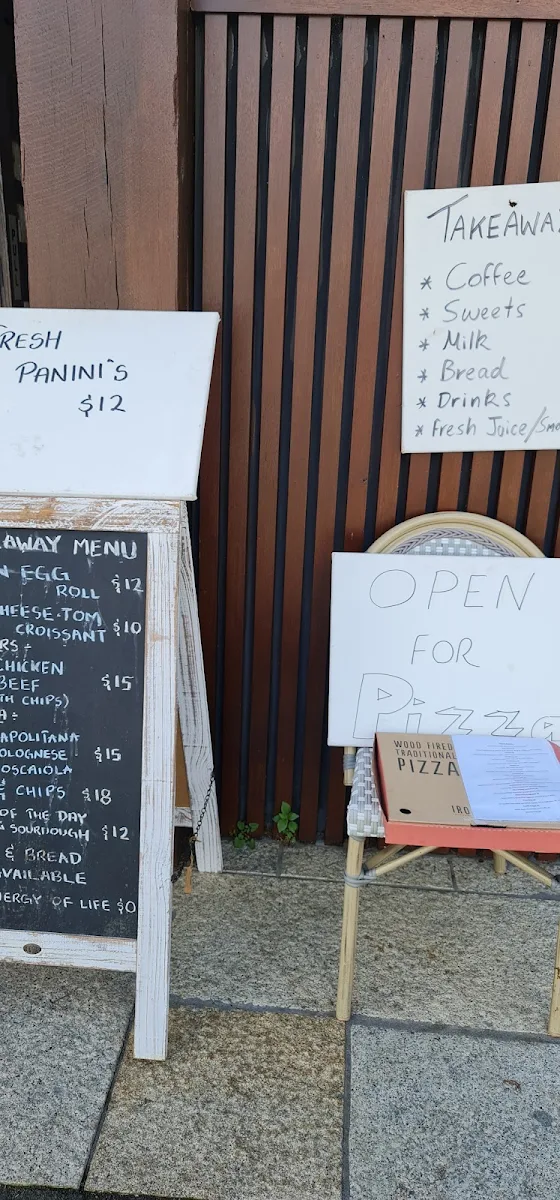 FRESH
PANINI'S
$12
AWAY MENU
EGG
ROLL $12
HEESE-TOM
CROISSANT $10
RS:
CHICKEN
BEEF $15
TH CHIPS)
A:
APOLITANA
OLOGNESE $15
OSCAIOLA
& CHIPS $18
OF THE DAY
SOURDOUGH $12
& BREAD
AVAILABLE
NERGY OF LIFE $0
TAKEAWA
* Coffee
* Sweets
* Milk
* Bread
* Drinks
* Fresh Joice/Smo
OPEN
FOR
Pizza
WOOD FIRED
TRADITIONAL
PIZZA